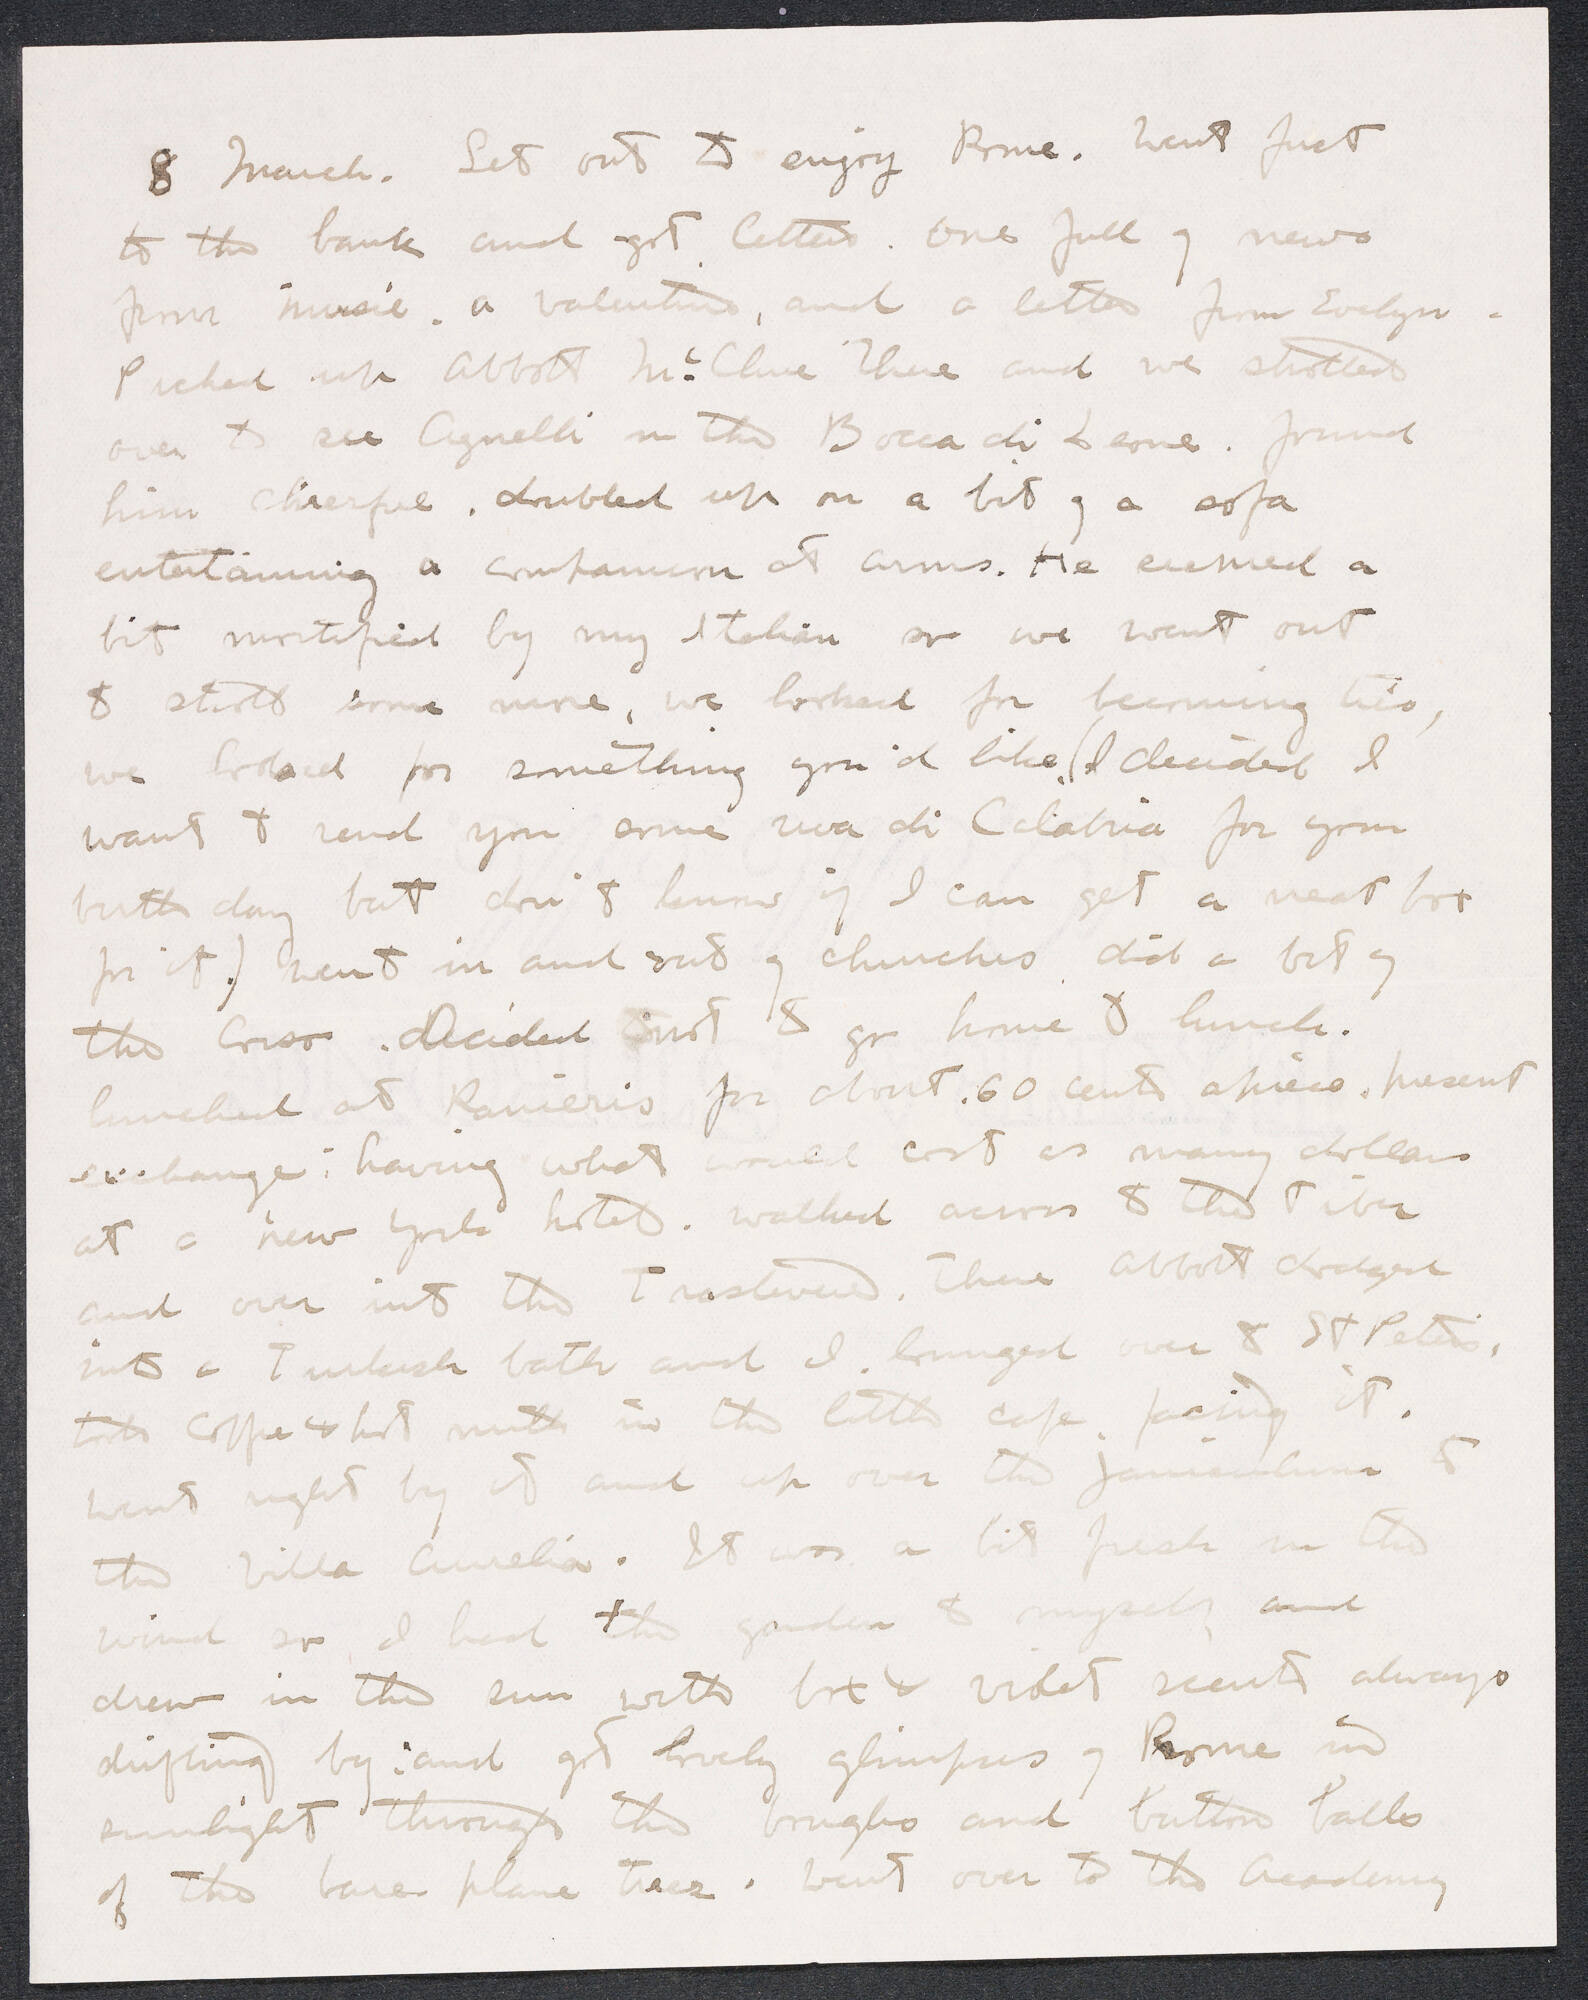 8 March. Set out to enjoy Rome. Went just
to the bank and got letters. One full of news
from Music. a valentine, and a letter from Evelyn.
Picked up Abbott McClure there and we strolled
over to see Agnelli in the Bocca di Leone. found
him cheerful, doubled up on a bit of a sofa
entertaining a companion at arms. He seemed a
bit mortified by my Italian so we went out
& stroll some more, we looked for becoming ties,
we looked for something you'd like. (I decided I
want to send you some uva di Calabria for your
birthday but don't know if I can get a neat box
for it.) went in and out of churches did a bit of
the Corso. Decided not to go home to lunch.
lunched at Ranieris for about .60 cents apiece. present
exchange: having what would cost as many dollars
at a New York hotel. walked across to the Tiber
and over into the Trastevere. There Abbott dodged
into a Turkish bath and I lounged over to St Peters.
took coffee & hot milk in the little cafe facing it.
went right by it and up over the Janiculum to
the Villa Aurelia. It was a bit fresh in the
wind so I had the garden to myself, and
drew in the sun with box & violet scents always
drifting by: and got lovely glimpses of Rome in
sunlight through the boughs and button balls
of the bare plane trees. Went over to the Academy